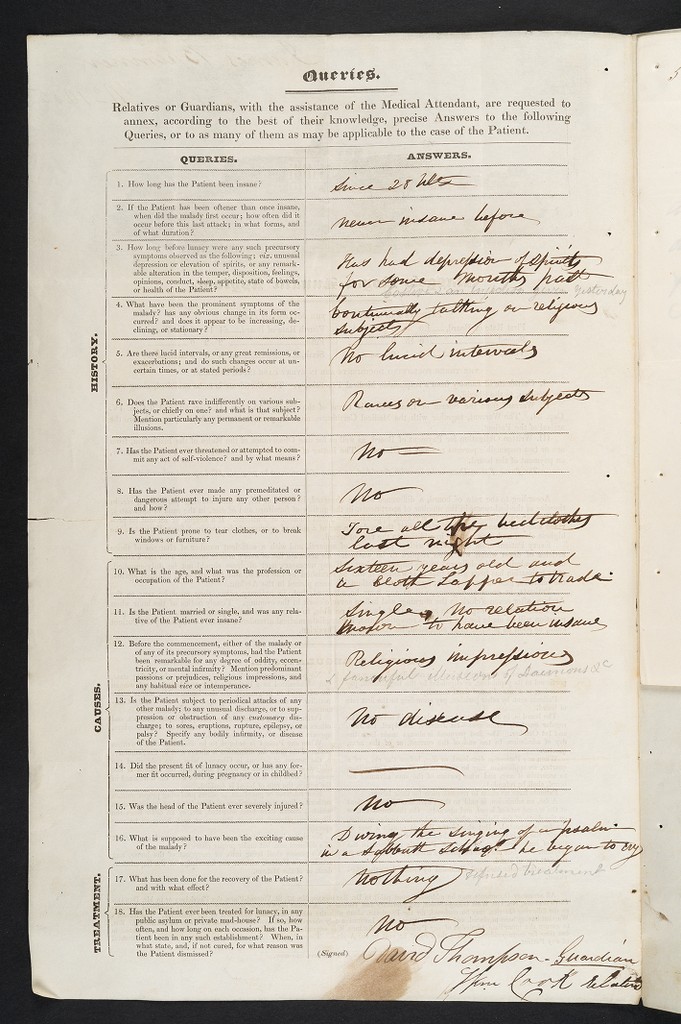 Queries.
Relatives or Guardians, with the assistance of the Medical Attendant, are requested to
annex, according to the best of their knowledge, precise Answers to the following
Queries, or to as many of them as may be applicable to the case of the Patient.
QUERIES.
ANSWERS.
HISTORY.
1. How long has the Patient been insane?
Since 28 Ulto
2. If the Patient has been oftener than once insane,
when did the malady first occur; how often did it
occur before this last attack; in what forms, and
of what duration?
never insane before
3. How long before lunacy were any such precursory
symptoms observed as the following; viz. unusual
depression or elevation of spirits, or any remark-
able alteration in the temper, disposition, feelings,
opinions, conduct, sleep, appetite, state of bowels,
or health of the Patient?
Has had depression of spirits
for some months past
yesterday
4. What have been the prominent symptoms of the
malady? has any obvious change in its form oc-
curred? and does it appear to be increasing, de-
clining, or stationary?
Continually talking on religious
subjects
5. Are there lucid intervals, or any great remissions, or
exacerbations; and do such changes occur at un-
certain times, or at stated periods?
No lucid intervals
6. Does the Patient rave indifferently on various sub-
jects, or chiefly on one? and what is that subject?
Mention particularly any permanent or remarkable
illusions.
Raves on various subjects
7. Has the Patient ever threatened or attempted to com-
mit any act of self-violence? and by what means?
No
8. Has the Patient ever made any premeditated or
dangerous attempt to injure any other person?
and how?
No
9. Is the Patient prone to tear clothes, or to break
windows or furniture?
Tore all the bedclothes
last night
CAUSES.
10. What is the age, and what was the profession or
occupation of the Patient?
Sixteen years old and
a Cloth Lapper to trade
11. Is the Patient married or single, and was any rela-
tive of the Patient ever insane?
Single, No relation
known to have been insane
12. Before the commencement, either of the malady or
of any of its precursory symptoms, had the Patient
been remarkable for any degree of oddity, eccen-
tricity, or mental infirmity? Mention predominant
passions or prejudices, religious impressions, and
any habitual vice or intemperance.
Religious impressions
& fanciful of Daemons &c
13. Is the Patient subject to periodical attacks of any
other malady; to any unusual discharge, or to sup-
pression or obstruction of any customary dis-
charge; to sores, eruptions, rupture, epilepsy, or
palsy? Specify any bodily infirmity, or disease
of the Patient.
No disease
14. Did the present fit of lunacy occur, or has any for-
mer fit occurred, during pregnancy or in childbed?
15. Was the head of the Patient ever severely injured?
No
16. What is supposed to have been the exciting cause
of the malady?
During the singing of a psalm
in a Sabbath School he began to cry
TREATMENT.
17. What has been done for the recovery of the Patient?
and with what effect?
Nothing refused treatment
18. Has the Patient ever been treated for lunacy, in any
public asylum or private mad-house? If so, how
often, and how long on each occasion, has the Pa-
tient been in any such establishment? When, in
what state, and, if not cured, for what reason was
the Patient dismissed?
No
(Signed) David Thompson Guardian
Wm Cook relative